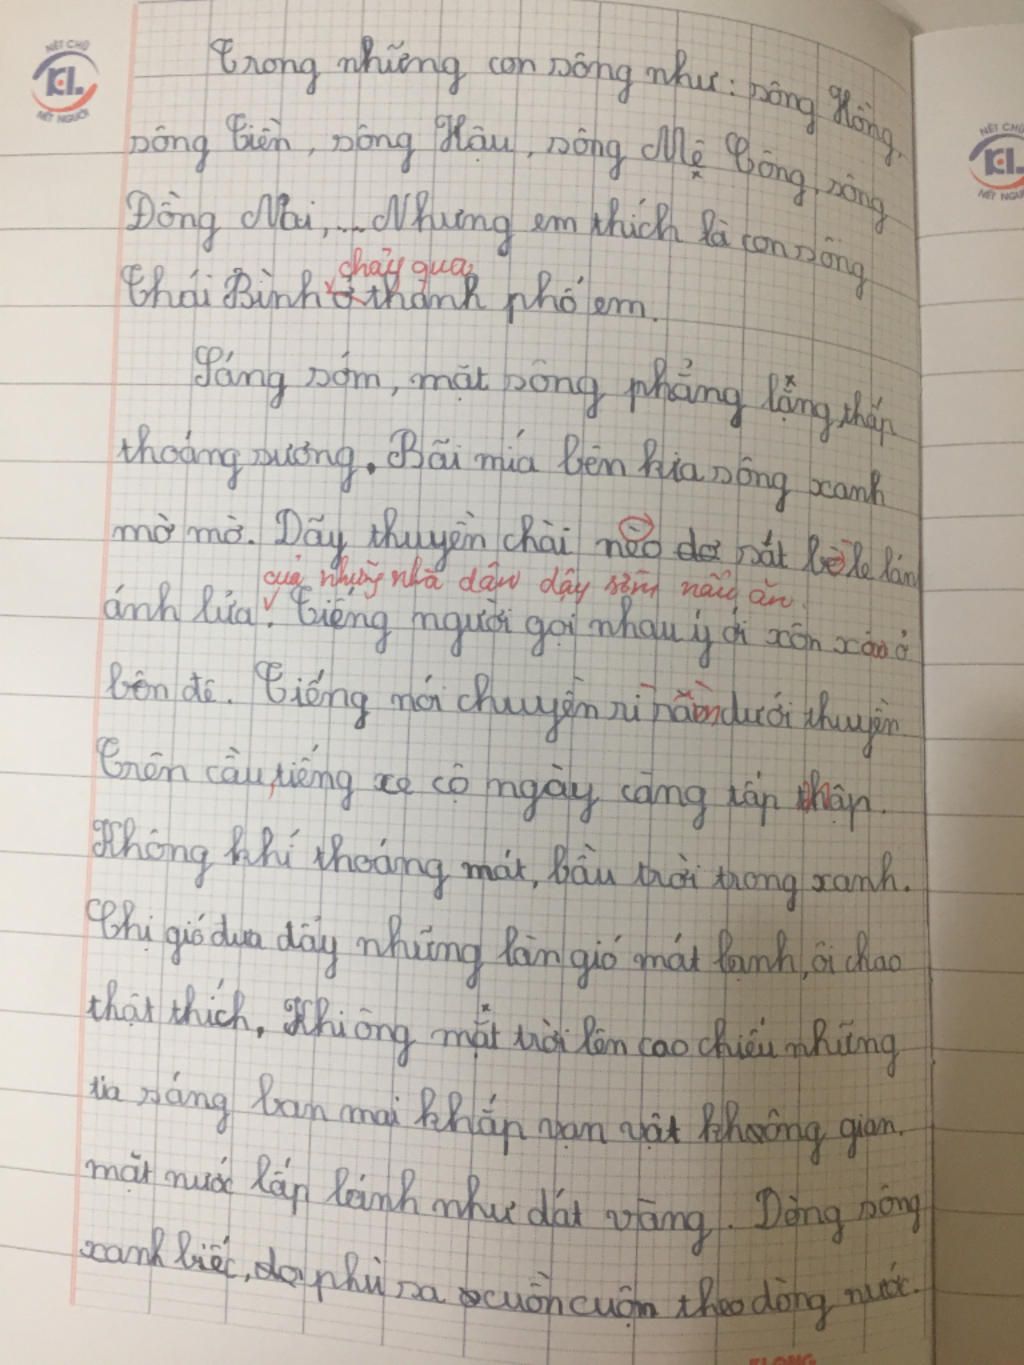 NÉT CHỮ
KL
NÉT NGƯỜI
NÉT CHỮ
KL
NÉT NGƯỜI
Trong những con sông như: sông Hồng,
sông Tiền, sông Hậu, sông Mê Công, sông
Đồng Nai,... Nhưng em thích là con sông
chảy qua
Thái Bình ở thành phố em.
Sáng sớm, mặt sông phẳng lặng, thấp
thoáng sương. Bãi mía bên kia sông xanh
mờ mờ. Dãy thuyền chài nèo đơ sát bờ le lán
của những nhà dân dậy sớm nấu ăn.
ánh lửa. Tiếng người gọi nhau ý ới xôn xao ở
bên đê. Tiếng nói chuyện rì rầm dưới thuyền
Trên cầu, tiếng xe cộ ngày càng tấp nập.
Không khí thoáng mát, bầu trời trong xanh.
Chị gió đưa đẩy những làn gió mát lạnh, ôi chao
thật thích. Khi ông mặt trời lên cao chiếu những
tia sáng ban mai khắp vạn vật không gian.
mặt nước lấp lánh như dát vàng. Dòng sông
xanh biếc, phù sa cuồn cuộn theo dòng nước.